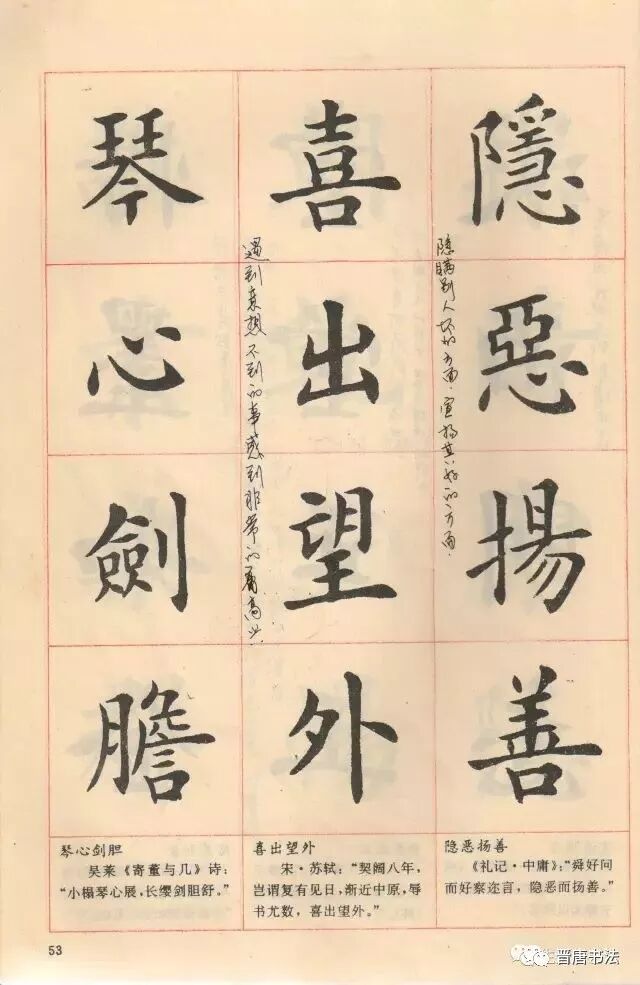 隱惡揚善
隐瞒别人坏的方面，宣扬其好的方面。
喜出望外
遇到意想不到的事感到非常的高兴
琴心劍膽
琴心剑胆
吴莱《寄董与几》诗：
“小榻琴心展，长缨剑胆舒。”
喜出望外
宋·苏轼：“契阔八年，
岂谓复有见日，渐近中原，辱
书尤数，喜出望外。”
隐恶扬善
《礼记·中庸》：“舜好问
而好察迩言，隐恶而扬善。”
53
晋唐书法